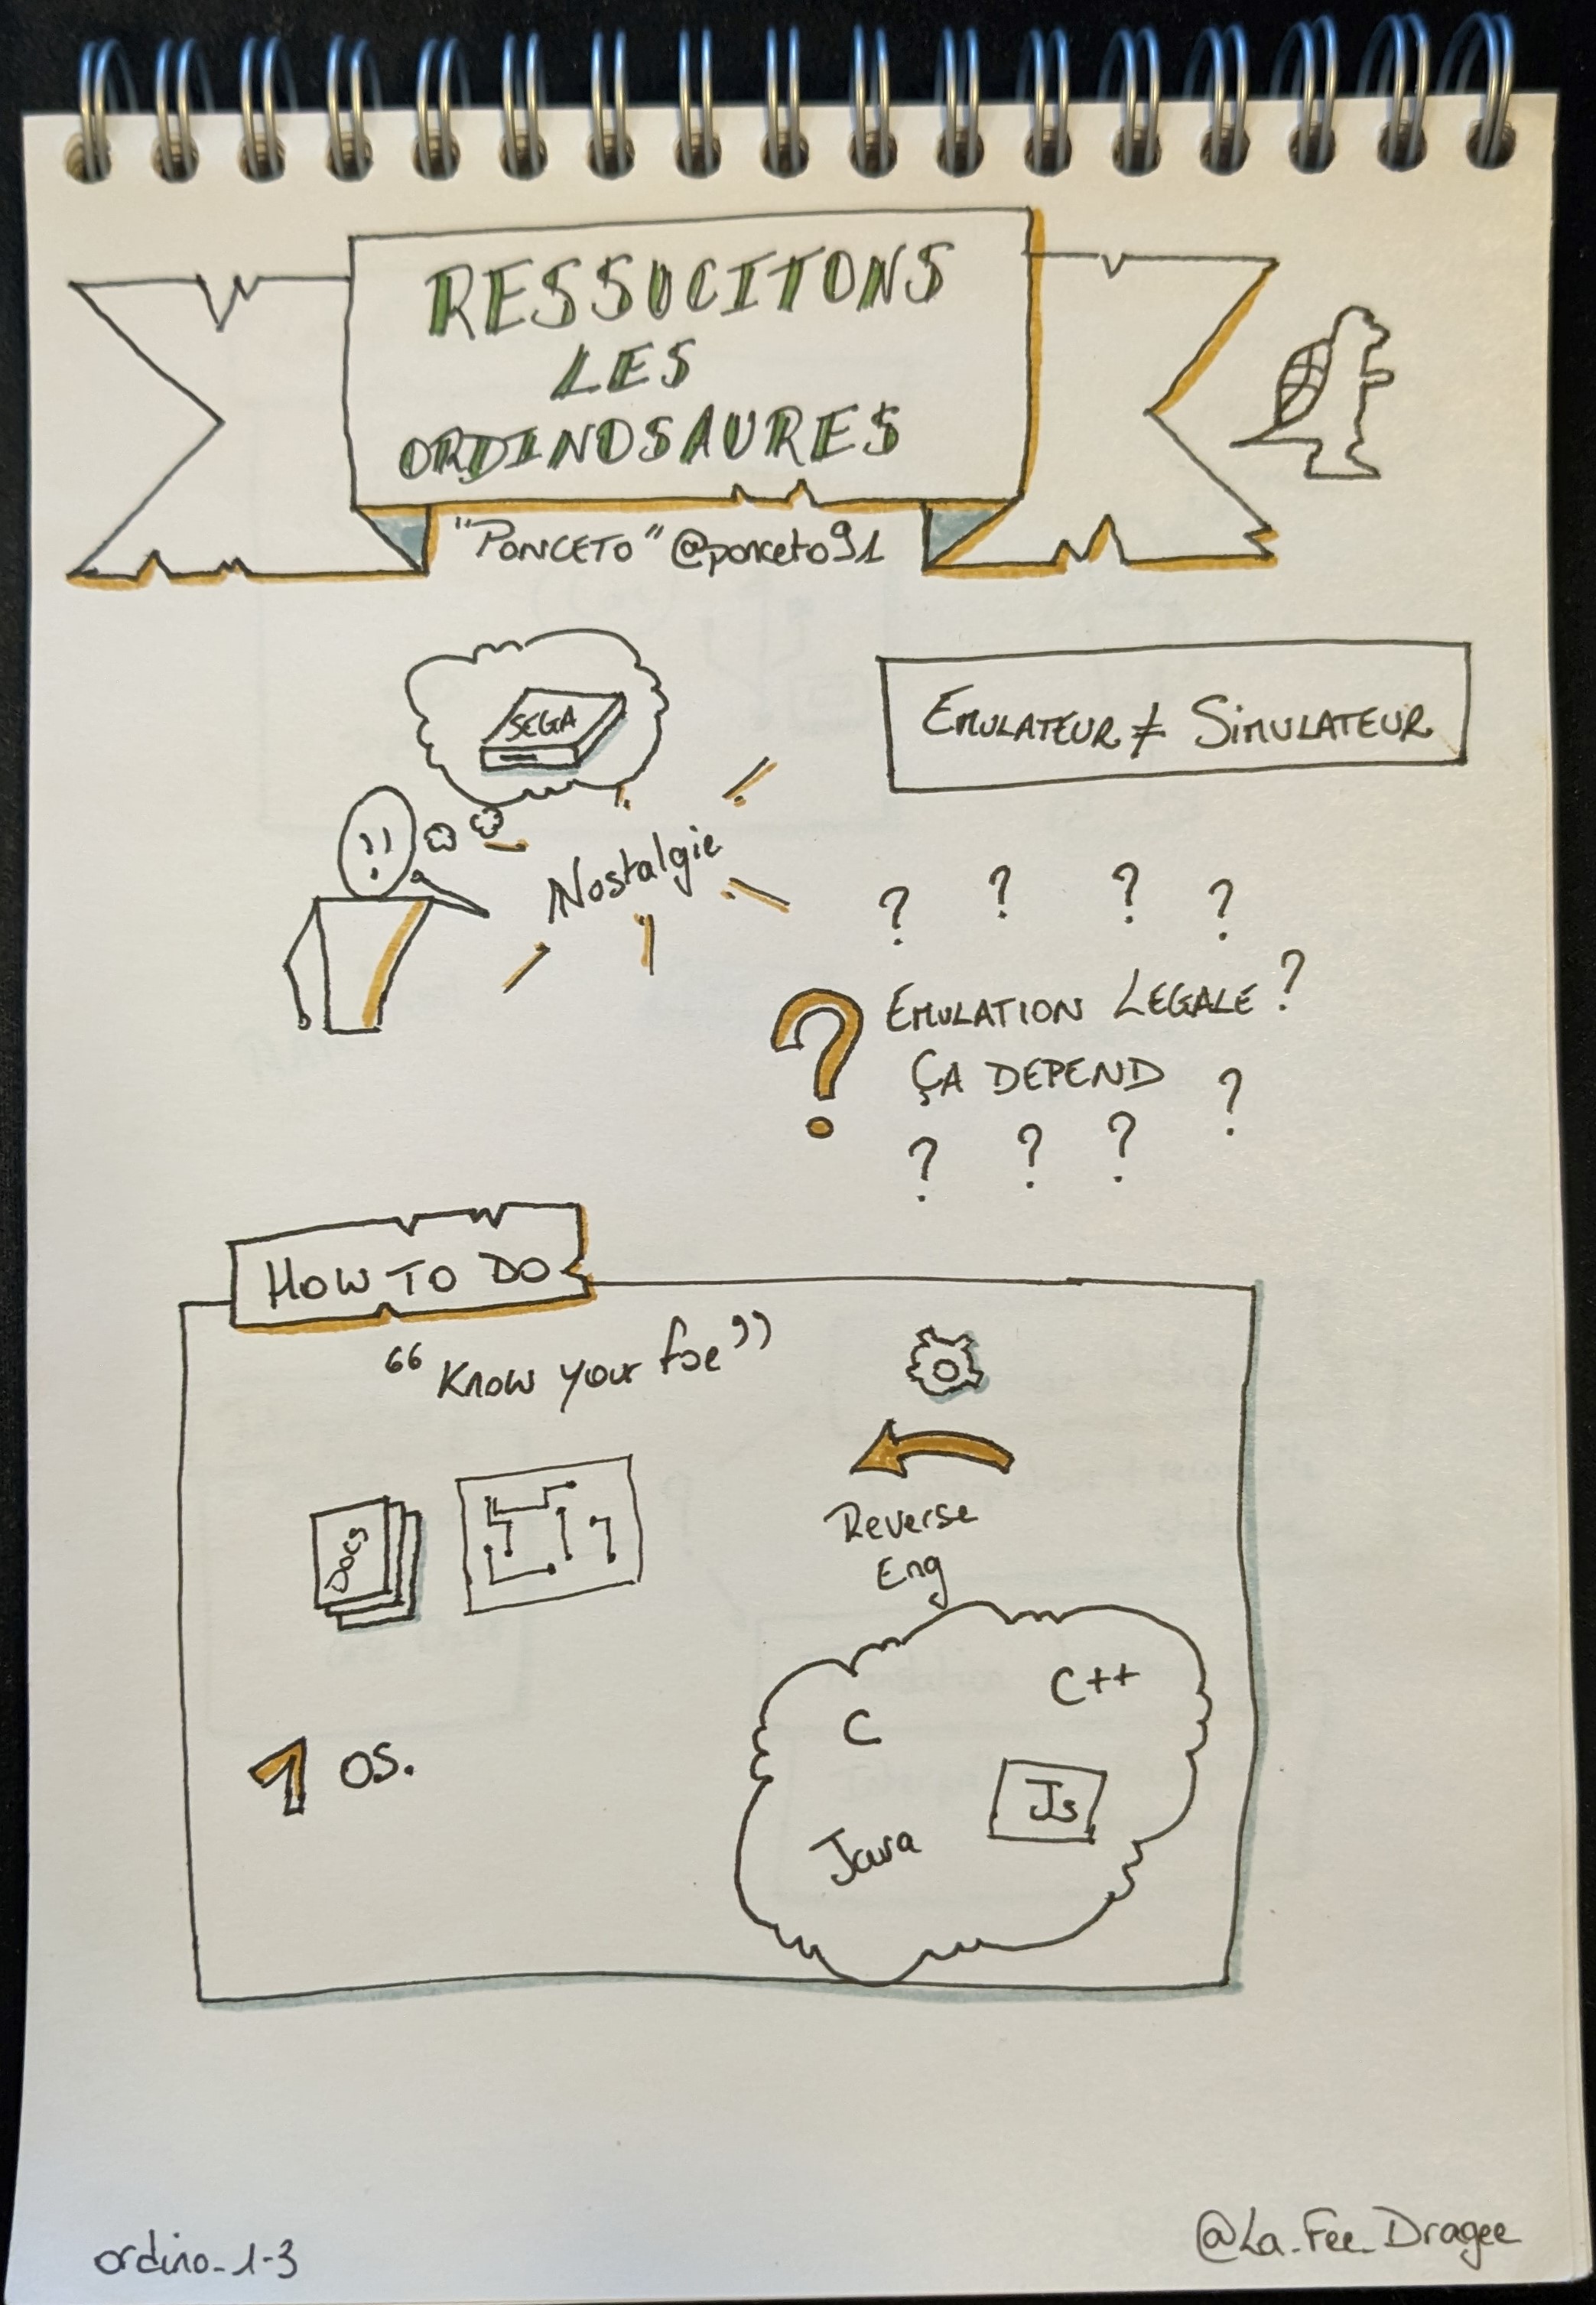 RESSUCITONS
LES
ORDINOSAURES
"PONCETO" @ponceto91
SEGA
Nostalgie
EMULATEUR ≠ SIMULATEUR
? ? ? ?
? EMULATION LEGALE ?
ÇA DEPEND ?
? ? ?
HOW TO DO
"Know your foe"
Docs
Reverse
Eng
1 OS.
C
C++
Js
Java
ordino_1-3
@La_Fee_Dragee